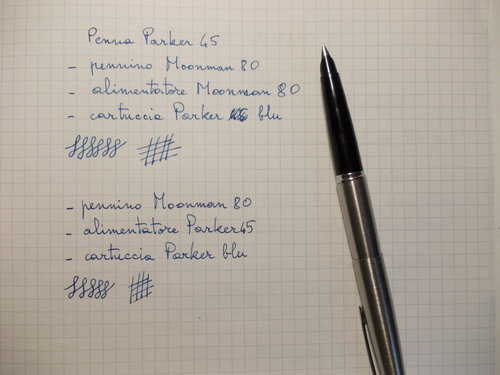 Penna Parker 45
- pennino Moonman 80
- alimentatore Moonman 80
- cartuccia Parker blu
- pennino Moonman 80
- alimentatore Parker 45
- cartuccia Parker blu